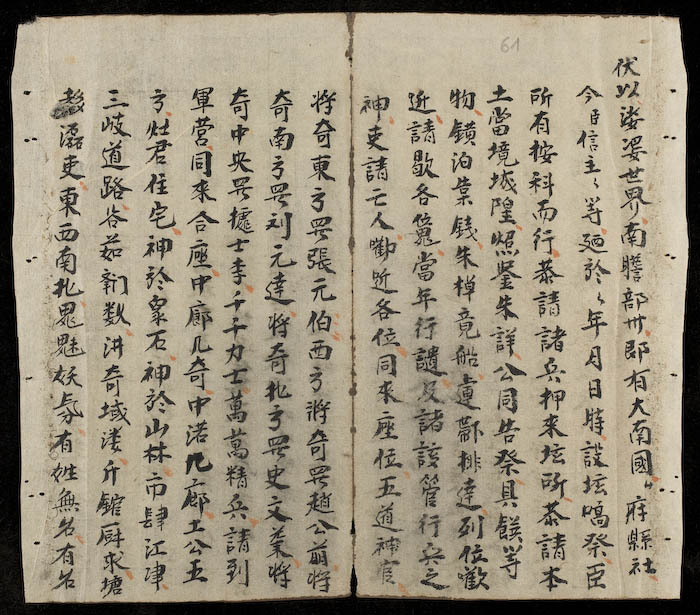 61
伏以娑婆世界南贍部州郡有大南國〻府縣社
今臣信主〻等廼於〻年月日時設坛犒祭臣
所有按科而行恭請諸兵押來坛所恭請本
土當境城隍照鋻朱詳公同告祭具饌等
物鐄泊票錢朱棹竟船 排達列位歡
近請歇各 當年行譴及諸該管行兵之
神吏請亡人勸近各位同來座位五道神官
將奇東方哭張元伯西方將奇哭趙公朙將
奇南方哭刘元達將奇北方哭史文業將
奇中央哭據士李千千力士萬萬精兵請到
軍營同來合座中廊几奇中諾九廊土公五
方灶君住宅神於棗石神於山林市肆江津
三岐道路谷茹 数洪奇域淒斤館厨求塘
潞吏東西南北鬼魅妖氛有姓無名有名